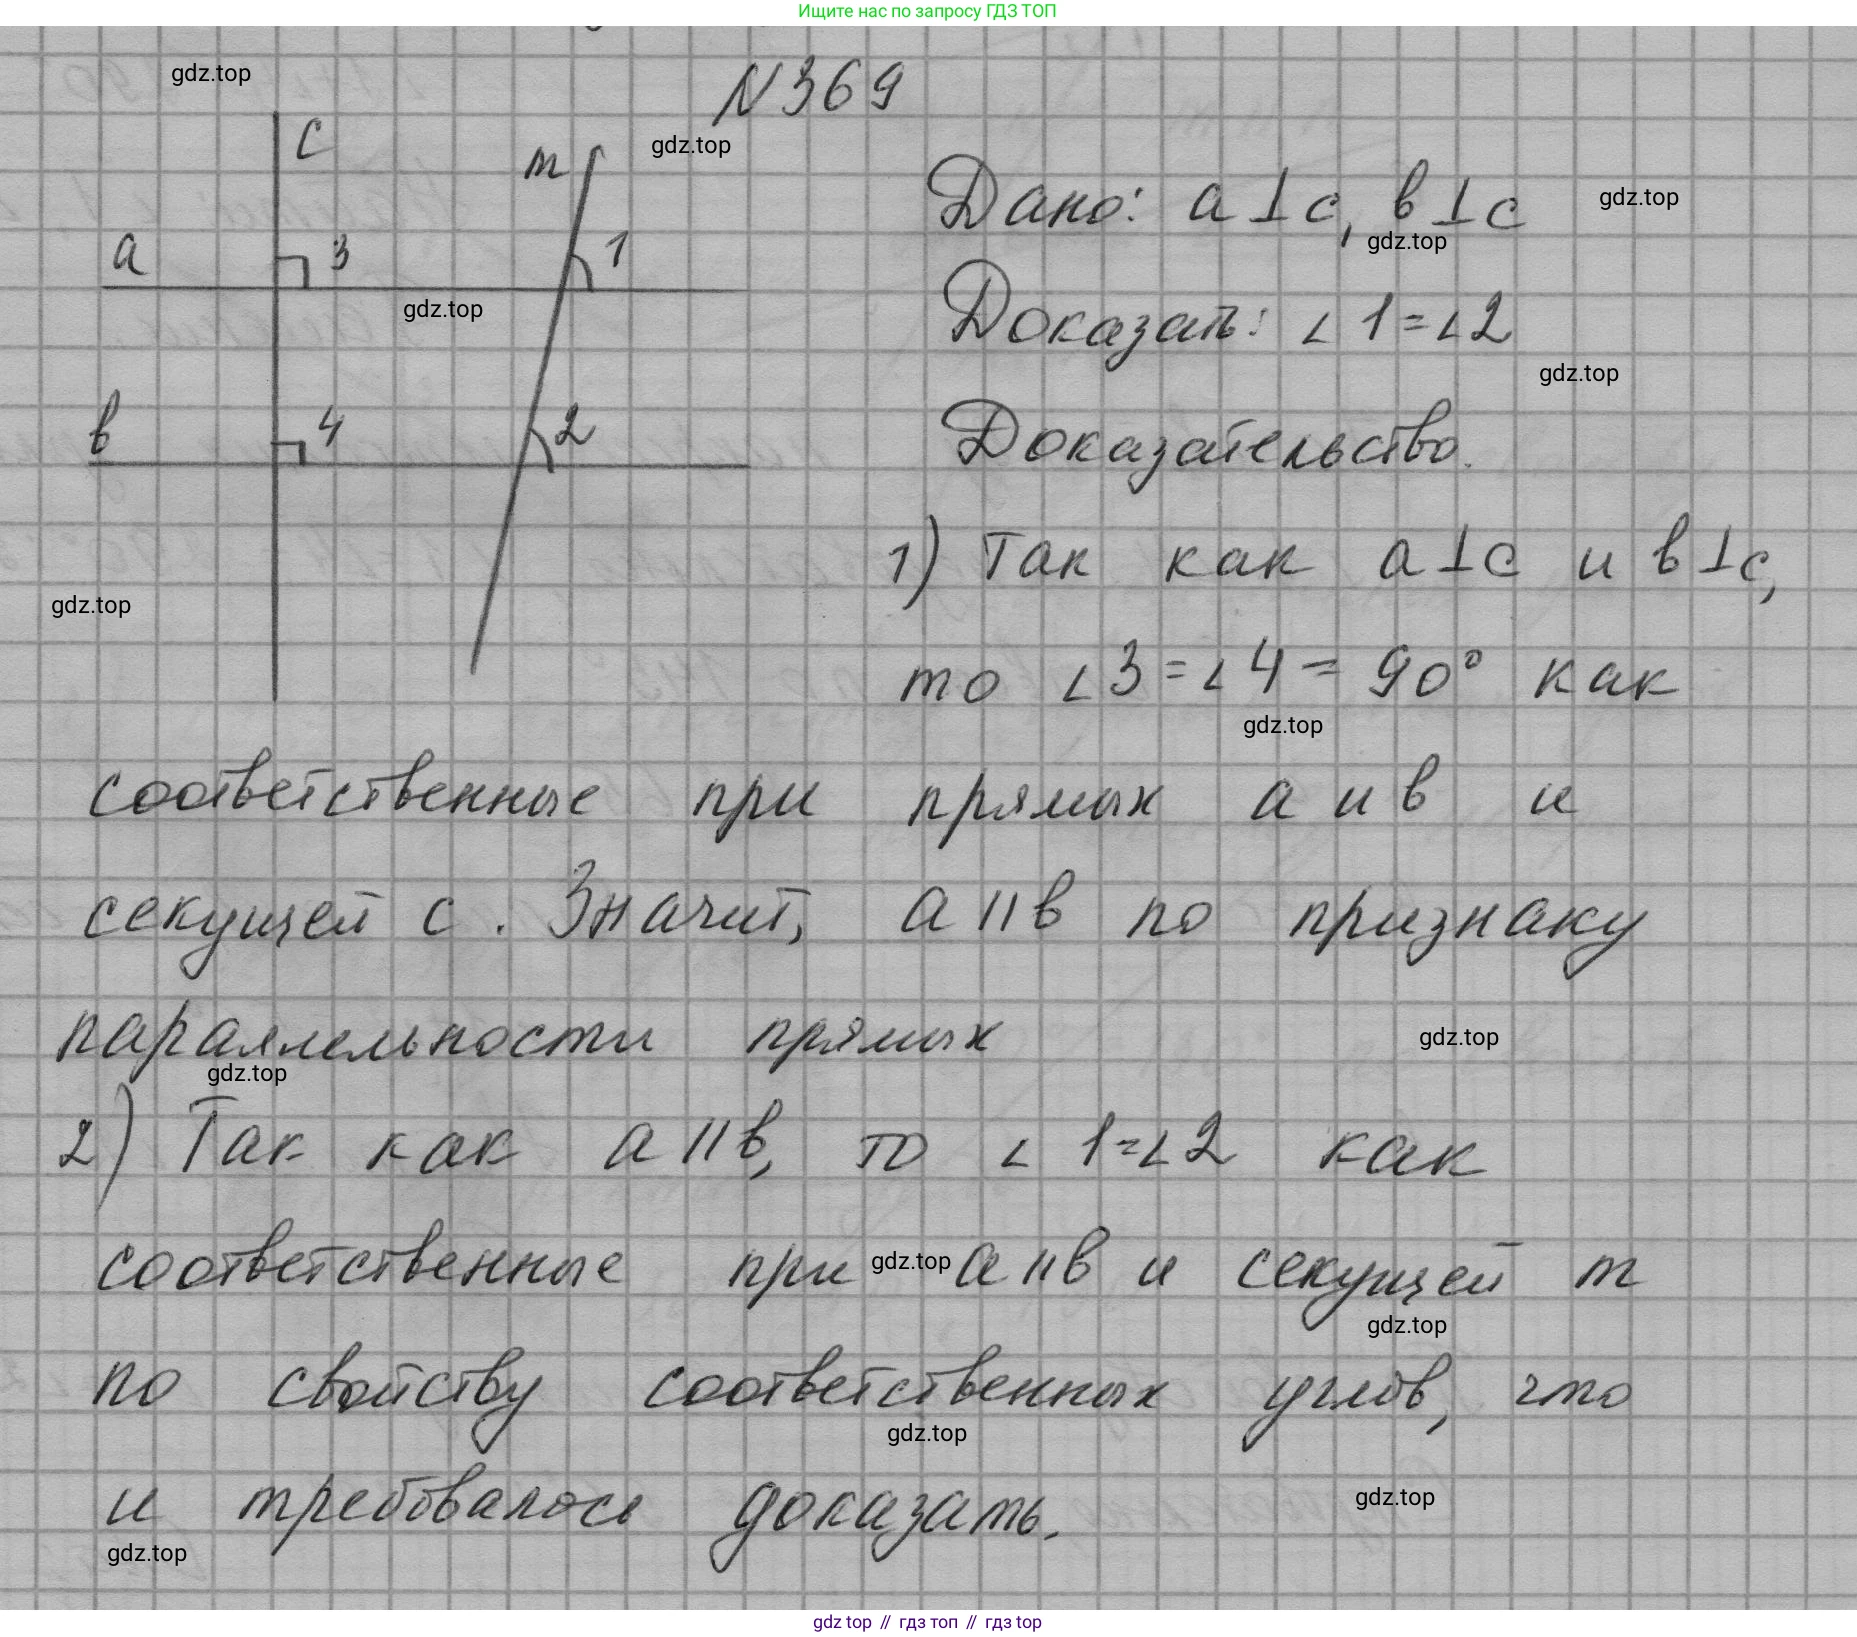 Ищите нас по запросу ГДЗ ТОП
gdz.top
N369
gdz.top
c
m
a
3
1
gdz.top
в
4
2
gdz.top
Дано: a⊥c, в⊥c
gdz.top
gdz.top
Доказать: ∠1=∠2
gdz.top
Доказательство.
1) Так как a⊥c и в⊥c,
то ∠3=∠4=90° как
gdz.top
соответственные при прямых a и в и
секущей c. Значит, a॥в по признаку
параллельности прямых
gdz.top
gdz.top
2) Так как a॥в, то ∠1=∠2 как
соответственные при a॥в и секущей m
gdz.top
gdz.top
по свойству соответственных углов, что
gdz.top
и требовалось доказать.
gdz.top
gdz.top
gdz.top // гдз топ // гдз top